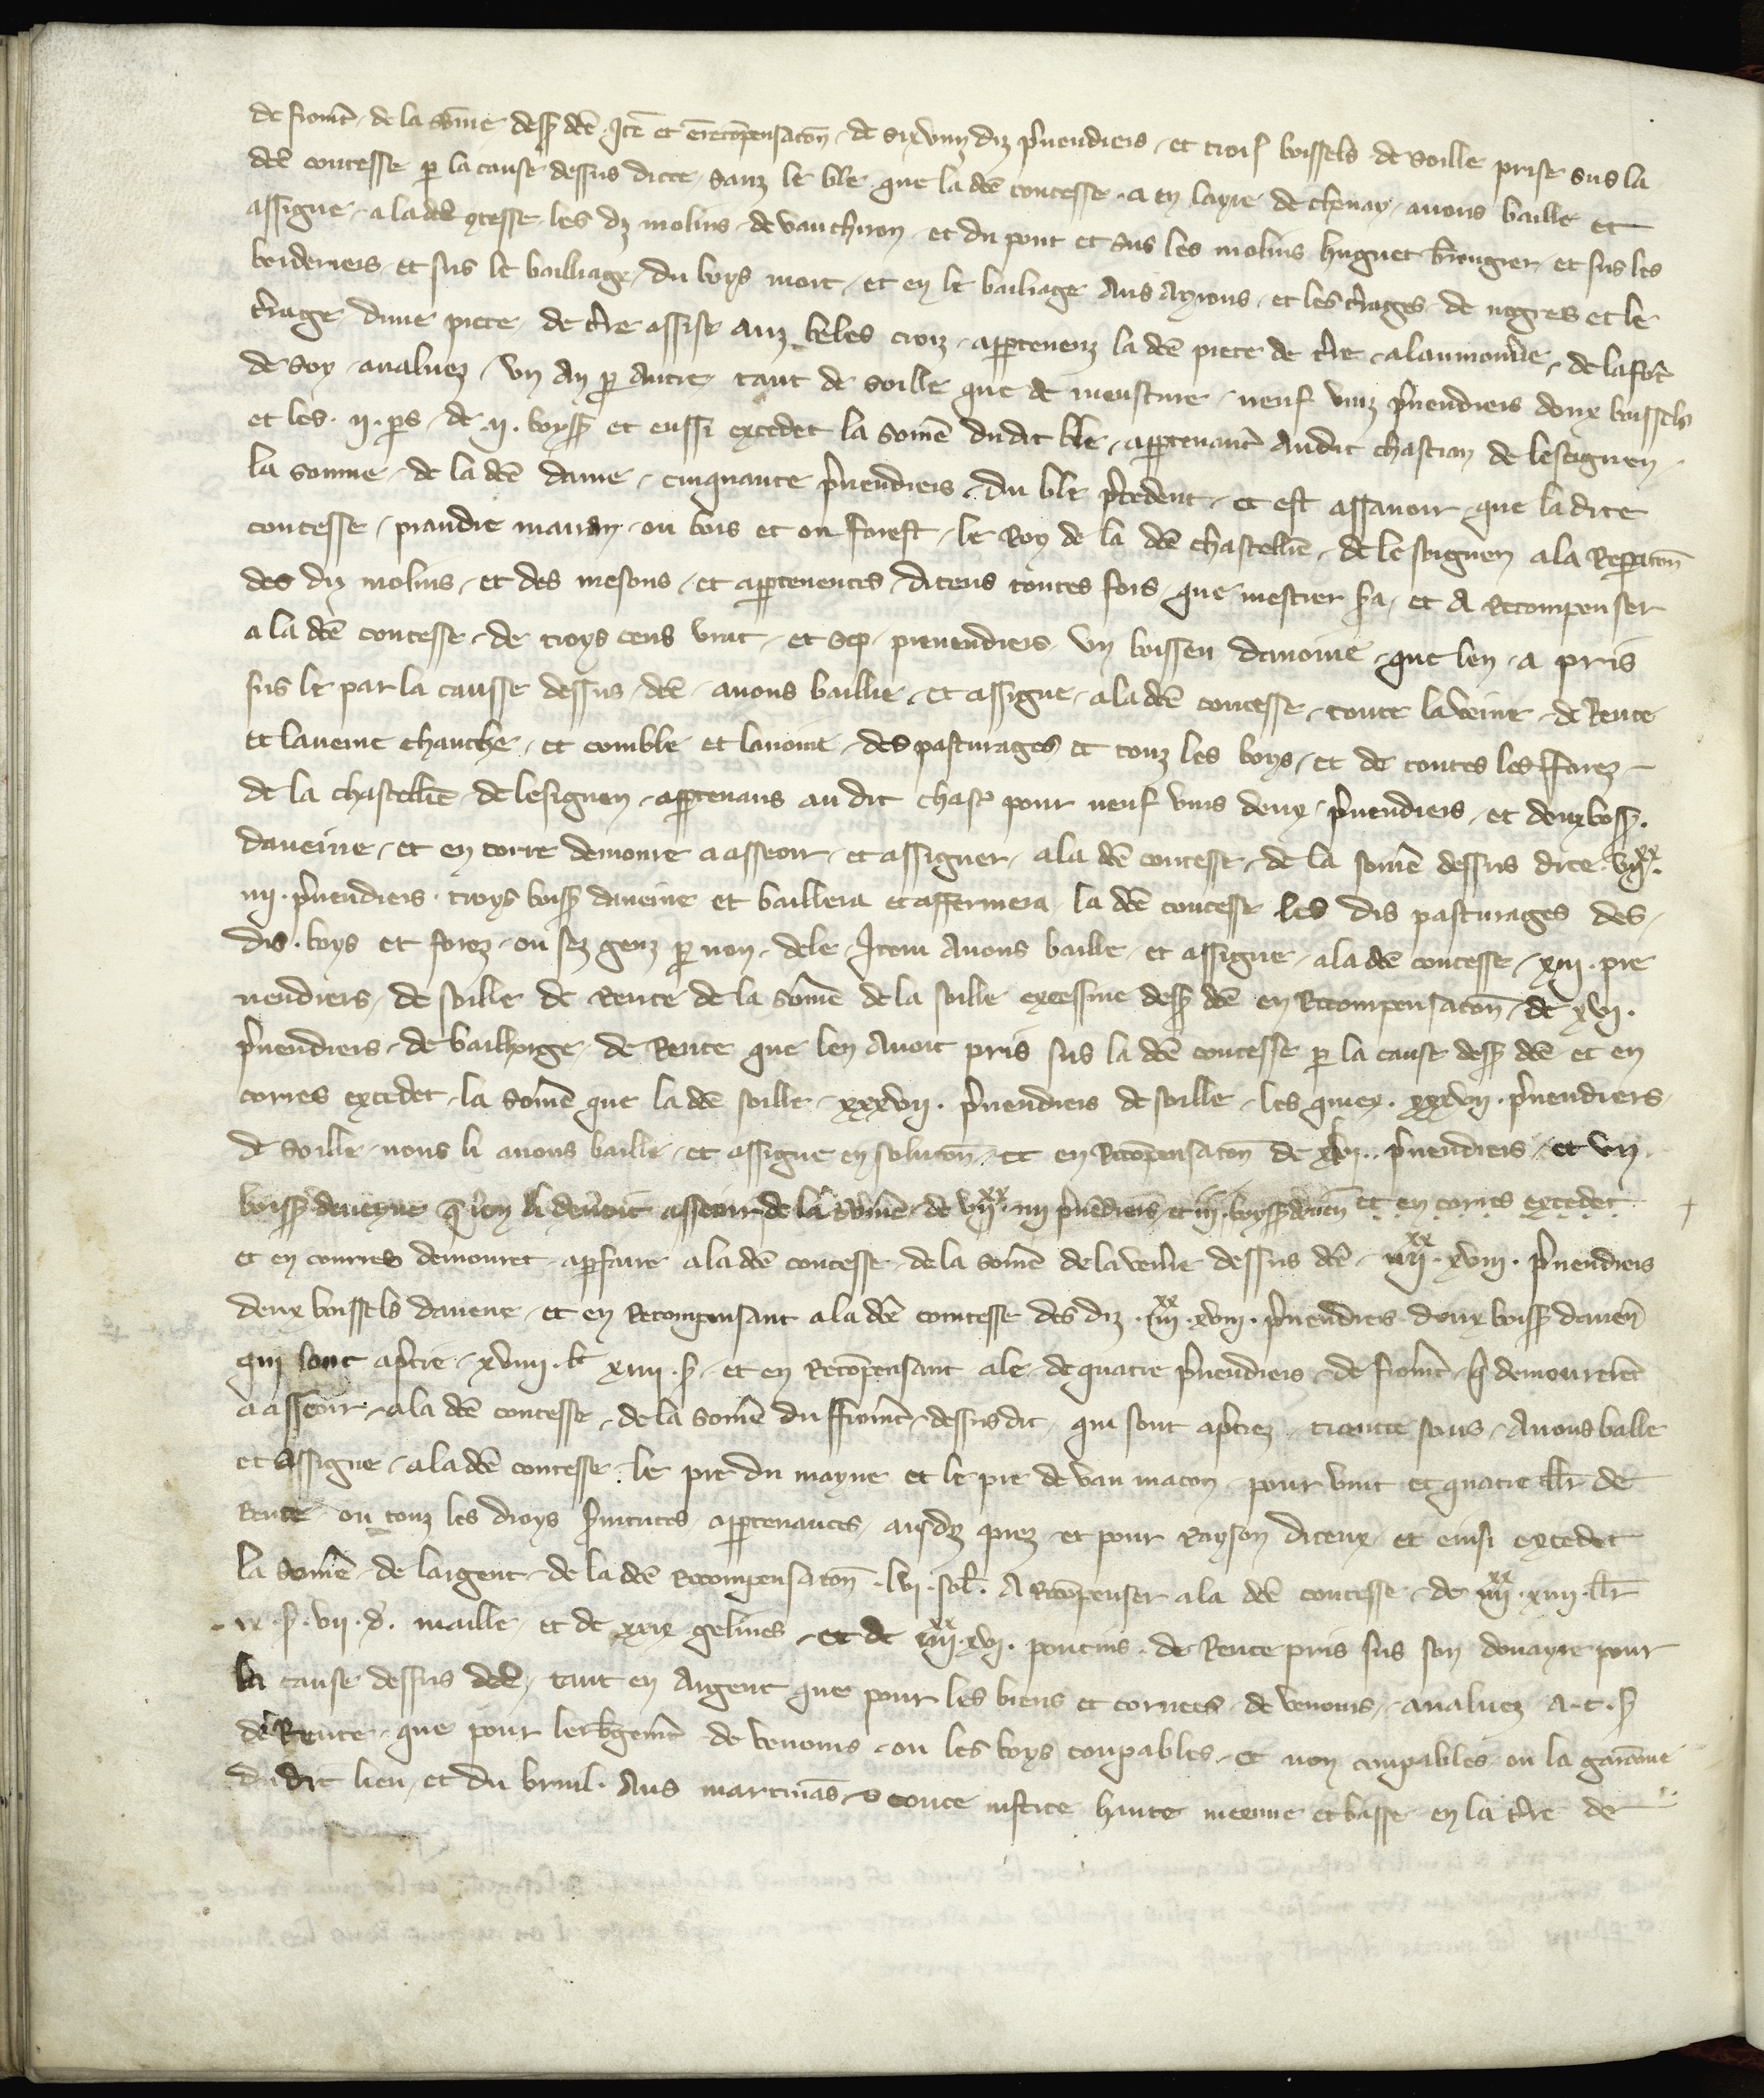 de froment de la sōme desꝰ dce Itē et e recōpensacōn de six vinz diz pͥvendiers et trois boissels de soille prise sus la
dcē contesse ꝑ la cause dessus dicte sanz le ble que la dcē contesse a en layre de chenay avons baille et
assigne a la dcē ꝯtesse les dz molins de vauchiron et du pont et sus les molins huguet et sus les
borderiers et sus le bailliage du boys mort et en le bailiage Aus Ayrons et les tͬrages de nogres et le
tͬrage dune piece de tͬre assise aux beles croiz appartenenz la dcē piece de tͬre a laumonͬie de lafoͬt
de soy avaluez un an ꝑ autre tant de soille que de mousture neuf vinz pͥvendiers doux boissels
et les ii ps de ii boyss et eussi excedet la somē dudit ble appartenant audit chasteau de leseignen
la somme de la dcē dame cinquante pͥvendiers du ble pͥcedent et est assavoir que la dite
contesse prandre marain ou bois et ou forest le Roy de la dcē chastellie de leseignen a la Reparacōn
des diz molins et des mesons et appartenences diceus toutes fois que mestier sͬa et A Recompenser
a la dcē contesse de troys cens vint et sep prevendiers un boisseu davoine que len a pris
sus le par la causse dessus dcē avons baillie et assigne a la dcē contesse toute laveine de Rente
et laveine chauche et comble et lavoine des pasturages et touz les boys et de toutes les fforez
de la chastellie de lesignen appartenans au dit chast pour neuf vins deux pͥvendiers et deux boiss
daveine et en torre demoure a asseoir et assigner a la dcē contesse de la somē dessus dite viiˣˣ
iiii pͥvendiers troys boiss daveine et baillera et affermera la dcē contesse les dis pasturages des
dis boys et forez ou sez genz ꝑ non dele Item Avons baille et assigne a la dcē contesse xiii pre
vendiers de soille de Rente de la somē de la soille excessive desꝰ dcē en Recompensacōn de xvii
pͥvendiers de bailhorge de Rente que len Avoit pris sus la dcē contesse ꝑ la cause desꝰ dcē et en
corres excedet la somē que la dcē soille xxxvii pͥvendiers de soille les quiex xxxvii pͥvendiers
de soille nous li avons baille et assigne en solucōn et en Recōpensacōn de xlvi pͥvendiers et un
boiss daveyne q̄ len li devoit asseoir de la sōme de viiˣˣ iiii pͥvēdiers et iii boyss daven et en corres excedet
et en courres demouret aperfaire a la dcē contesse de la somē de lavenͥe dessus dcē iiiiˣˣ xviii pͥvendiers
deux boissels davene et en Recompensant a la dcē comtesse des diz iiiiˣˣ xviii pͥvendiers doux boiss daven
qui sont apͥcie xviiii lt xiiii s et en Recōpensant a le de quatre pͥvendiers de fromēt q̄ demourerēt
a asseoir a la dcē contesse de la somē du ffromēt dessus dit qui sont apͥciez trante sous Avons balle
et Assigne a la dcē contesse le pre du mayne et le pre de vau macon pour vint et quatre lbr de
Rente ou touz les droys sͬvitutes appartenances aus dz prez et pour Rayson diceux et einsi excedet
la somē de largent de la dcē Recompensacōn lvi sol A Recōpenser a la dcē contesse de iiiiˣˣ xiiii lbr
ix s vii d maille et de xxix gelines et de iiiiˣˣ xvi poucins de Rente pris sus son douayre pour
la cause dessus dcē tant en Argent que pour les biens et corvees de venours avaluez a c s
de Rente que pour lerbgemt de venours ou les boys coupables et non coupables ou la garāne
dudit lieu et du bruil Aus martineas o toute justice haute meenne et basse en la tͬre de